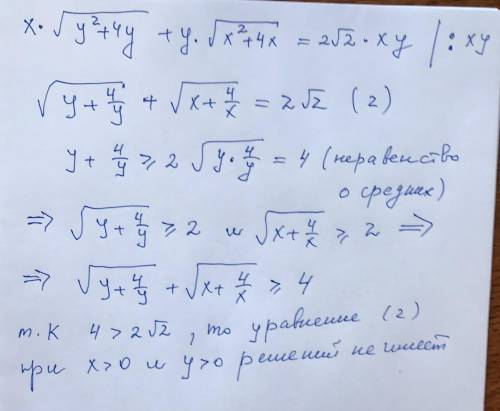 x·√(y²+4y) + y·√(x²+4x) = 2√2·xy |:xy
√(y+4/y) + √(x+4/x) = 2√2 (2)
y+4/y ≥ 2√(y·4/y) = 4 (неравенство
о средних)
=> √(y+4/y) ≥ 2 и √(x+4/x) ≥ 2 =>
=> √(y+4/y) + √(x+4/x) ≥ 4
т.к 4 > 2√2, то уравнение (2)
при x>0 и y>0 решений не имеет